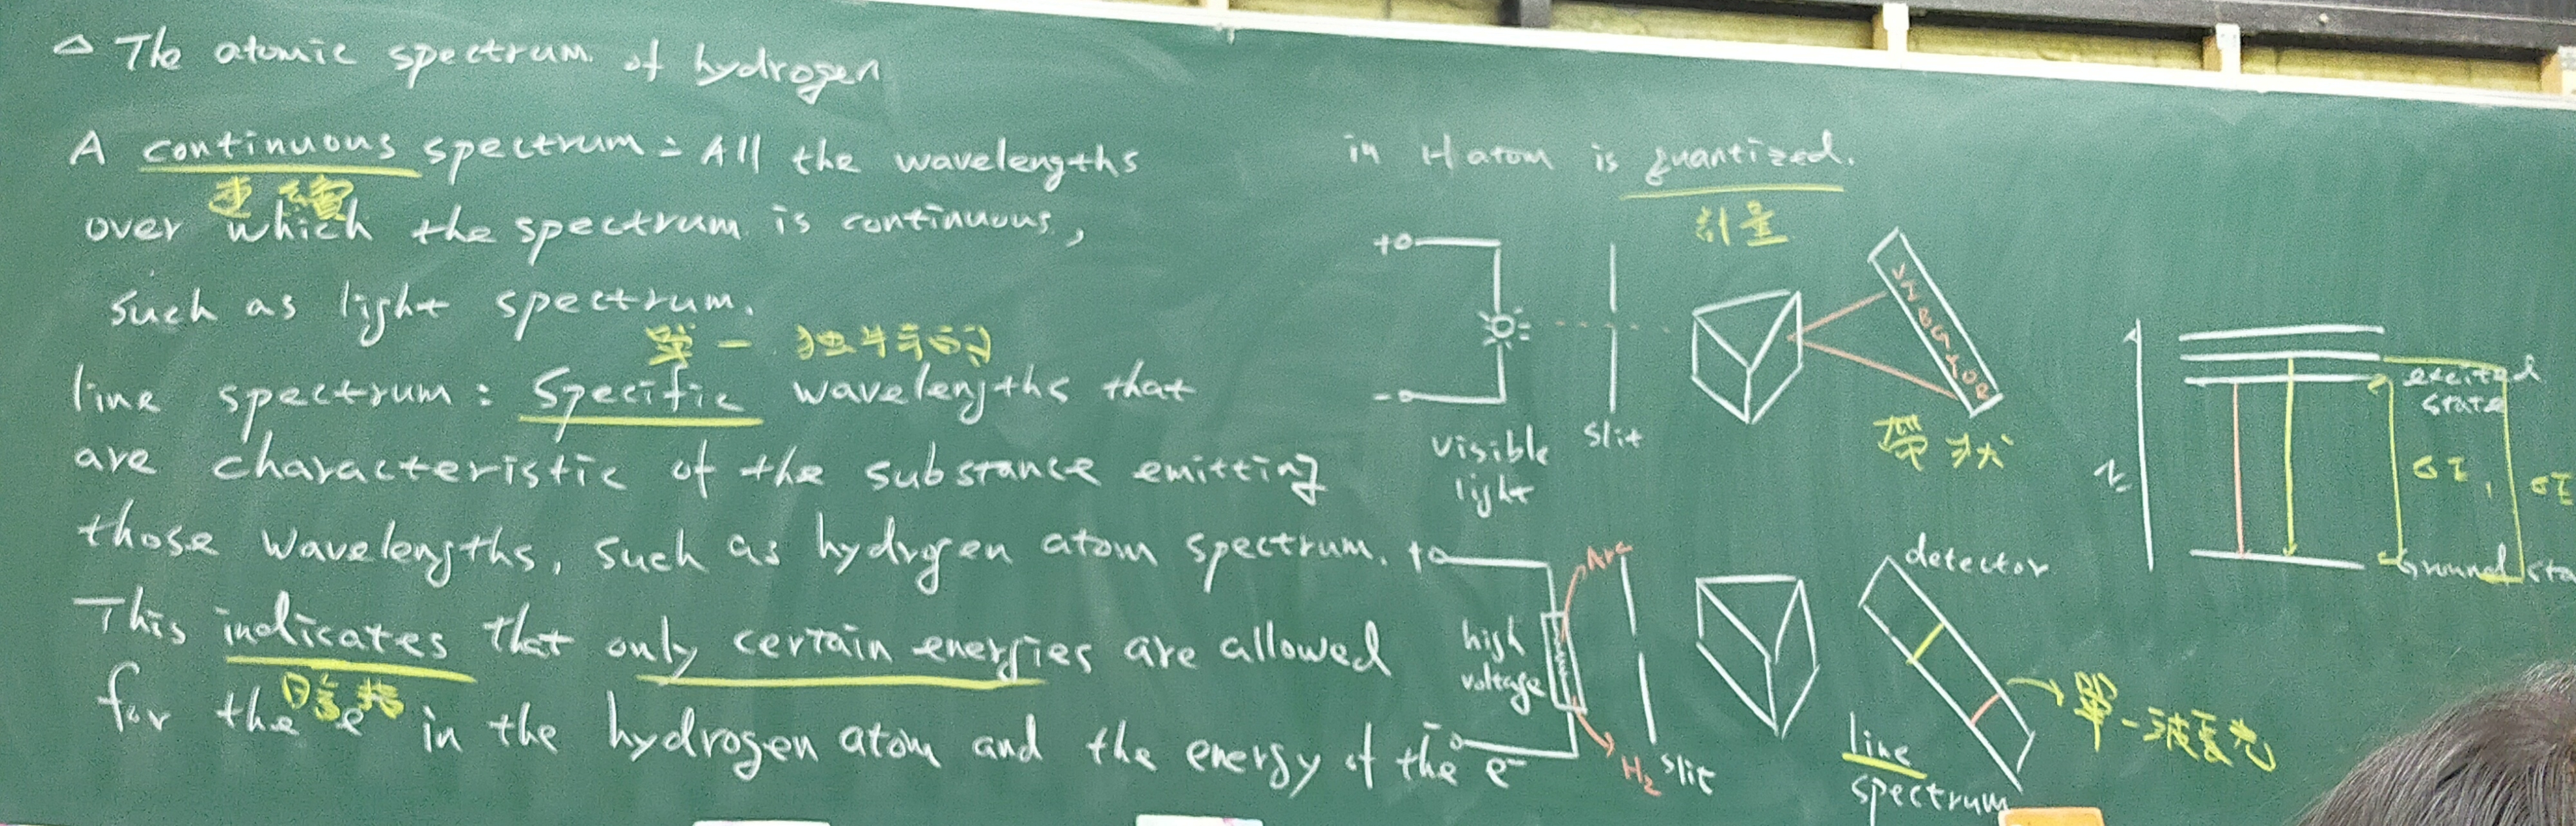 △ The atomic spectrum of hydrogen
A continuous spectrum = All the wavelengths
連續
over which the spectrum is continuous,
such as light spectrum.
單一
line spectrum : Specific wavelengths that
are characteristic of the substance emitting
those wavelengths, such as hydrgen atom spectrum.
This indicates that only certain energies are allowed
暗指
for the e⁻ in the hydrogen atom and the energy of the e⁻
in H atom is quantized.
計量
+
-
visible
light
slit
帶狀
+
Arc
high
voltage
H₂
slit
detector
line
spectrum
單一波長光
excited
state
E
ΔE₁
ΔE
Ground sta